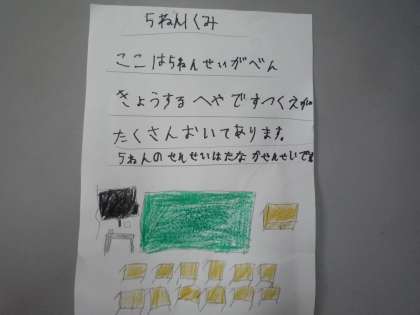 5ねん1くみ
ここは5ねんせいがべん
きょうするへやですつくえが
たくさんおいてあります。
5ねんのせんせいはたなかせんせいです